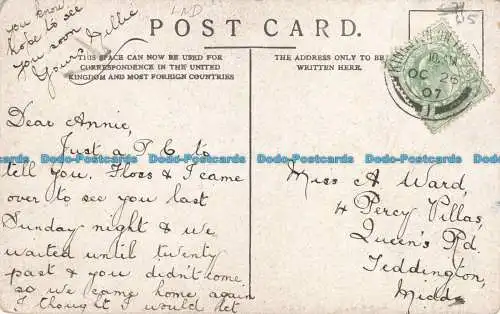 you know,
hope to see
you soon
Yours Tillie
LND
POST CARD.
THIS SPACE CAN NOW BE USED FOR
CORRESPONDENCE IN THE UNITED
KINGDOM AND MOST FOREIGN COUNTRIES
THE ADDRESS ONLY TO BE
WRITTEN HERE.
OC 26
07
1
Dear Annie,
Just a P C to
tell you. Floss & I came
over to see you last
Sunday night & we
waited until twenty
past & you didn't come
so we came home again
I thought I would let
Miss A Ward,
4 Percy Villas,
Queen's Rd.
Teddington,
Midds
Dodo-Postcards Dodo-Postcards Dodo-Postcards Dodo-Postcards Dodo-Postcards